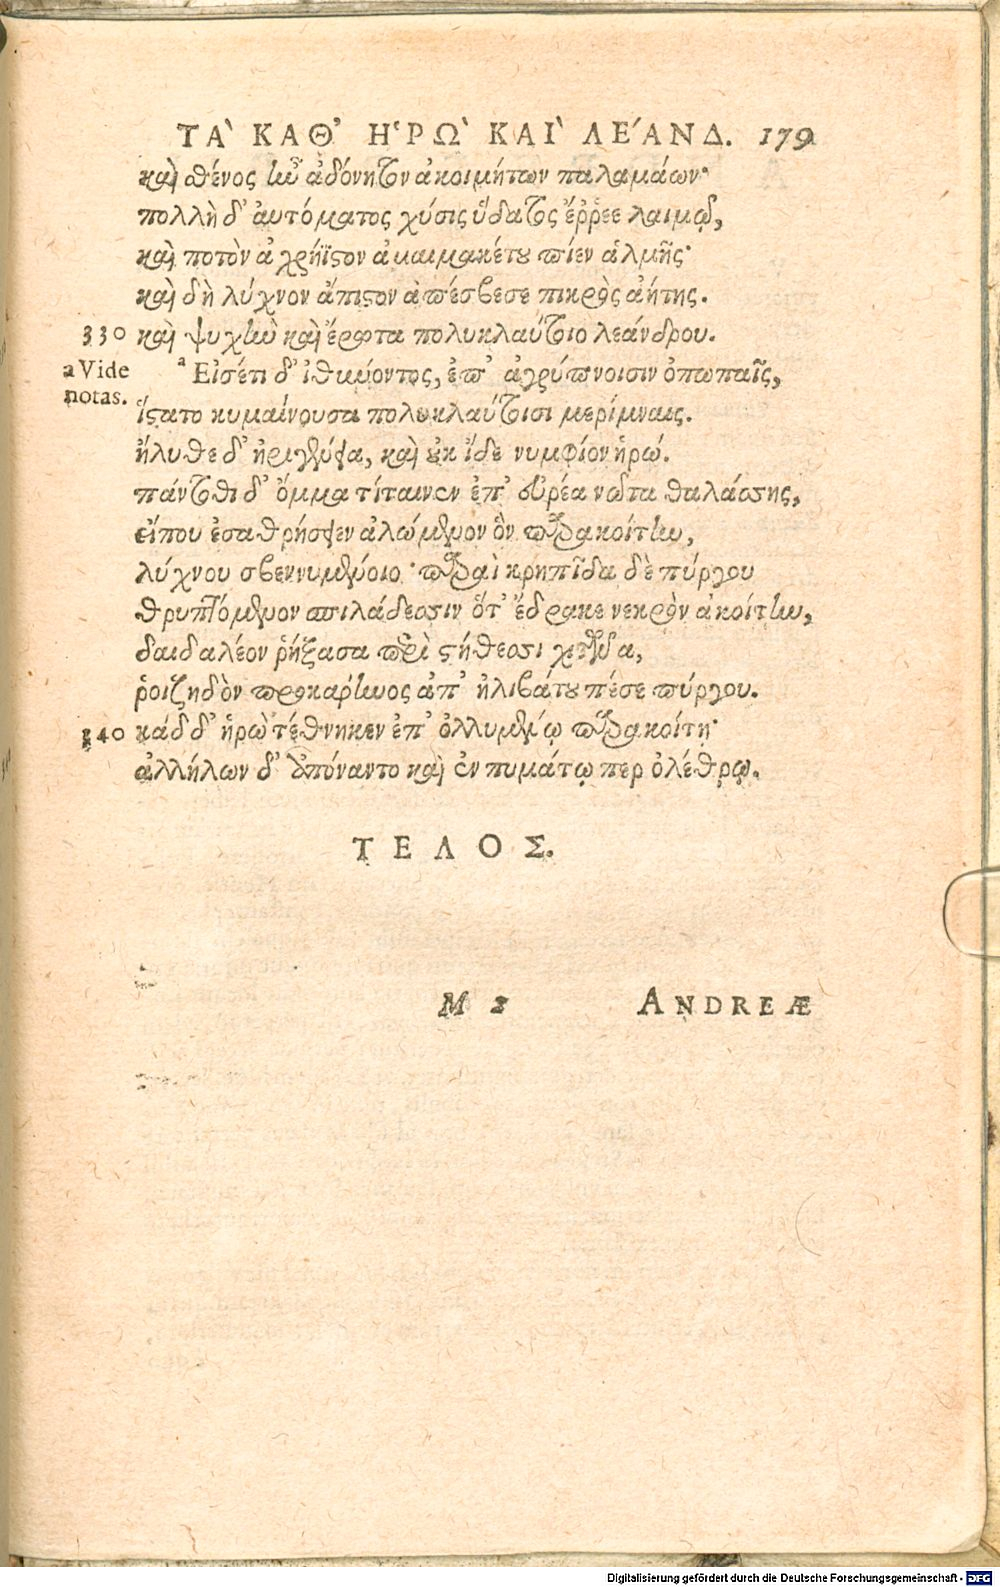 ΤᾺ ΚΑΘ' ἩΡῺ ΚΑῚ ΛΈΑΝΔ. 179
καὶ σθένος ἦν ἀδόνητον ἀκοιμήτων παλαμάων·
πολλὴ δ' ἀυτόματος χύσις ὕδατος ἔῤῥεε λαιμῷ,
καὶ ποτὸν ἀχρήϊστον ἀμαιμακέτου πίεν ἅλμης·
καὶ δὴ λύχνον ἄπιστον ἀπέσβεσε πικρὸς ἀήτης.
330 καὶ ψυχὴν καὶ ἔρωτα πολυκλαύτοιο λεάνδρου.
a Vide notas. ᵃ Εἰσέτι δ' ἰθύοντος, ἐπ' ἀγρύπνοισιν ὀπωπαῖς,
ἵστατο κυμαίνουσα πολυκλαύτοισι μερίμναις.
ἤλυθε δ' ἠριγένεια, καὶ οὐκ ἴδε νυμφίον ἡρώ.
πάντοθι δ' ὄμμα τίταινεν ἐπ' εὐρέα νῶτα θαλάσσης,
εἴπου ἐσαθρήσειεν ἀλώμενον ὃν παρακοίτην,
λύχνου σβεννυμένοιο· παραὶ κρηπῖδα δὲ πύργου
θρυπτόμενον σπιλάδεσσιν ὅτ' ἔδρακε νεκρὸν ἀκοίτην,
δαιδαλέον ῥήξασα περὶ στήθεσσι χιτῶνα,
ῥοιζηδὸν προκάρηνος ἀπ' ἠλιβάτου πέσε πύργου.
340 κάδ δ' ἡρὼ τέθνηκεν ἐπ' ὀλλυμένῳ παρακοίτῃ·
ἀλλήλων δ' ἀπόναντο καὶ ἐν πυμάτῳ περ ὀλέθρῳ.
ΤΕΛΟΣ.
M 2 ANDREÆ
Digitalisierung gefördert durch die Deutsche Forschungsgemeinschaft - DFG